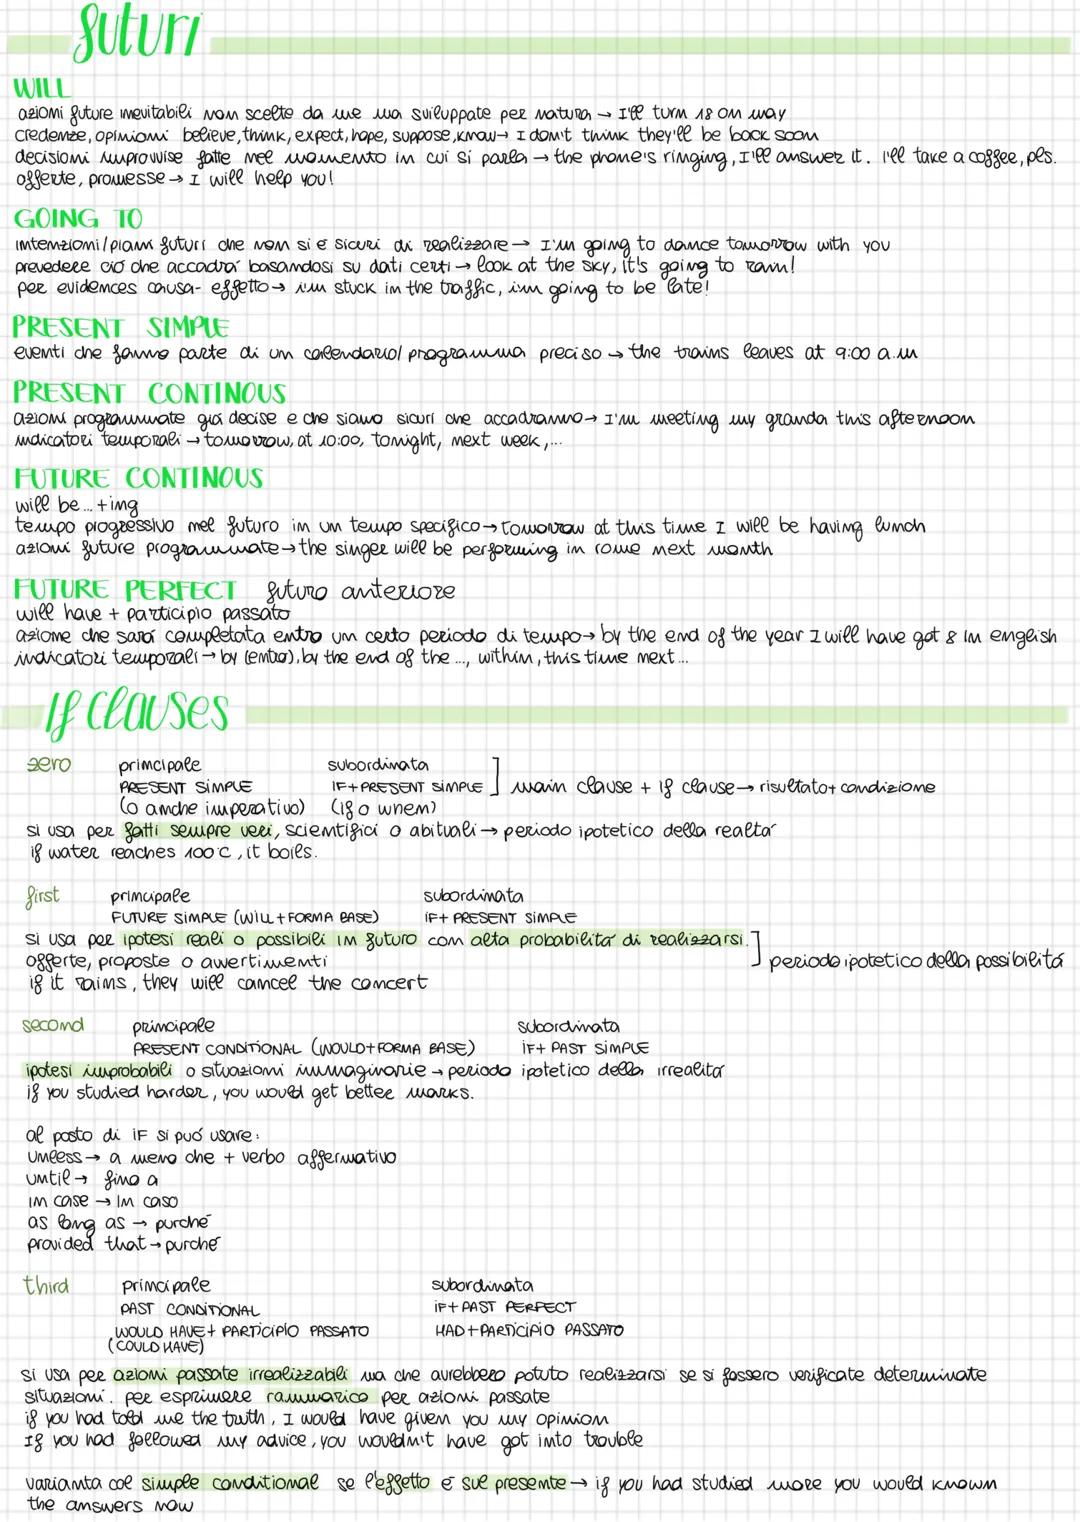 futuri
WILL
azioni future inevitabili non scelte da me ma sviluppate per natura → I'll turn 18 on may
credenze, opinioni believe, think, expect, hope, suppose, know → I don't think they'll be back soon
decisioni improvvise fatte nel momento in cui si parla → the phone's ringing, I'll answer it. I'll take a coffee, pls.
offerte, promesse → I will help you!
GOING TO
intenzioni/piani futuri che non si è sicuri di realizzare → I'm going to dance tomorrow with you
prevedere ciò che accadrá basandosi su dati certi → look at the sky, it's going to rain!
per evidences causa-effetto → i'm stuck in the traffic, i'm going to be late!
PRESENT SIMPLE
eventi che fanno parte di un calendario/ programma preciso → the trains leaves at 9:00 a.m
PRESENT CONTINOUS
azioni programmate giá decise e che siamo sicuri che accadranno → I'm meeting my granda this afternoon
indicatori temporali → tomorrow, at 10:00, tonight, next week, ...
FUTURE CONTINOUS
will be ... +ing
tempo progressivo nel futuro in un tempo specifico → tomorrow at this time I will be having lunch
azioni future programmate → the singer will be performing in rome next month
FUTURE PERFECT futuro anteriore
will have + participio passato
azione che sará completata entro un certo periodo di tempo → by the end of the year I will have got 8 in english
indicatori temporali → by (entro), by the end of the ..., within, this time next ...
If clauses
zero principale subordinata
PRESENT SIMPLE IF+PRESENT SIMPLE ] main clause + if clause → risultato+ condizione
(o anche imperativo) (if o when)
si usa per fatti sempre veri, scientifici o abituali → periodo ipotetico della realtá
if water reaches 100°C, it boils.
first principale subordinata
FUTURE SIMPLE (WILL+FORMA BASE) IF+ PRESENT SIMPLE
si usa per ipotesi reali o possibili in futuro con alta probabilitá di realizzarsi. ]
offerte, proposte o avvertimenti periodo ipotetico della possibilitá
if it rains, they will cancel the concert
second principale subordinata
PRESENT CONDITIONAL (WOULD+FORMA BASE) IF+ PAST SIMPLE
ipotesi improbabili o situazioni immaginarie → periodo ipotetico della irrealitá
if you studied harder, you would get better marks.
al posto di IF si puó usare:
unless → a meno che + verbo affermativo
until → fino a
in case → in caso
as long as → purché
provided that → purché
third principale subordinata
PAST CONDITIONAL IF+PAST PERFECT
WOULD HAVE+ PARTICIPIO PASSATO HAD+PARTICIPIO PASSATO
(COULD HAVE)
si usa per azioni passate irrealizzabili ma che avrebbero potuto realizzarsi se si fossero verificate determinate
situazioni. per esprimere rammarico per azioni passate
if you had told me the truth, I would have given you my opinion
If you had followed my advice, you wouldn't have got into trouble
varianta col simple conditional se l'effetto é sul presente → if you had studied more you would known
the answers now